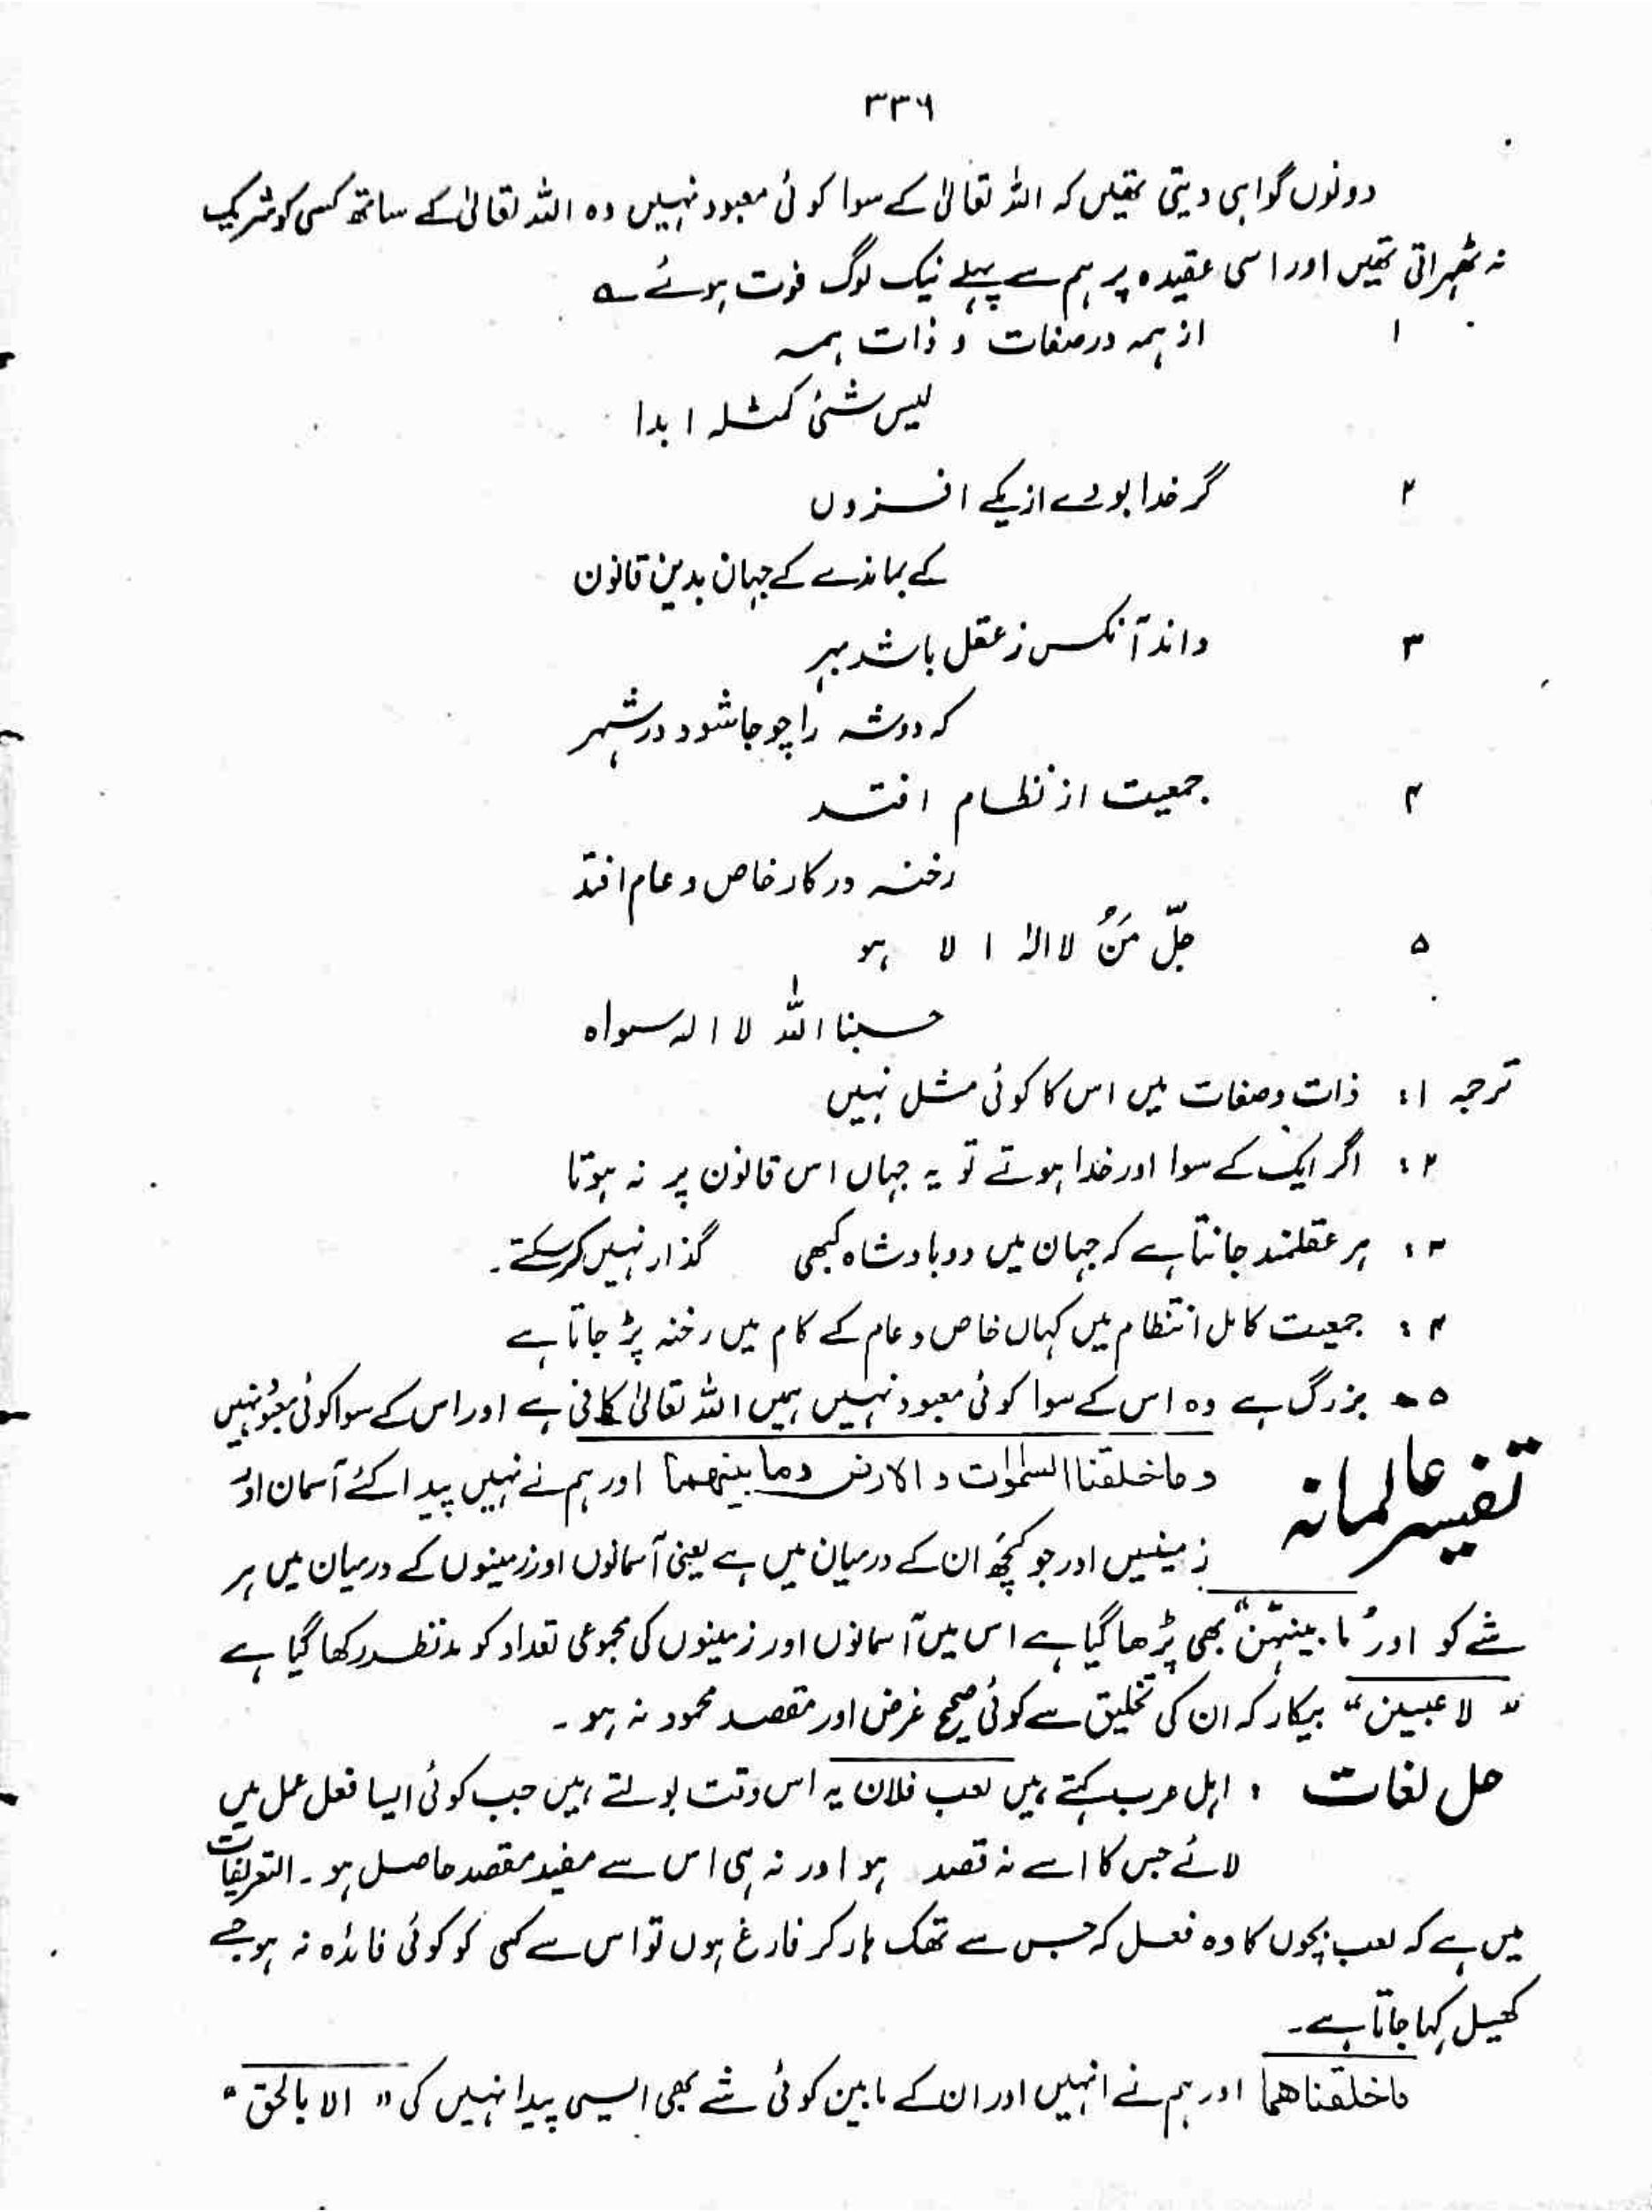 ۳۳۶
دونوں گواہی دیتی تھیں کہ اللہ تعالیٰ کے سوا کوئی معبود نہیں وہ اللہ تعالیٰ کے ساتھ کسی کو شریک
نہ ٹھہراتی تھیں اور اسی عقیدہ پر ہم سے پہلے نیک لوگ فوت ہوئے ؎
۱ از ہمہ در صفات و ذات ہمہ
لیس شئی کمثلہ ابدا
۲ گر خدا بودے از یکے افزوں
کے بماندے کے جہان بدین قانون
۳ داند آنکس ز عقل باشد بہر
کہ دوشہ را چو جا شود در شہر
۴ جمعیت از نظام افتد
رخنہ در کار خاص و عام افتد
۵ جلّ مَنُ لا الہٰ الا ہو
حسبنا اللہ لا الہ سواہ
ترجمہ ۱: ذات و صفات میں اس کا کوئی مثل نہیں
۲: اگر ایک کے سوا اور خدا ہوتے تو یہ جہاں اس قانون پر نہ ہوتا
۳: ہر عقلمند جانتا ہے کہ جہان میں دو بادشاہ کبھی گذار نہیں کر سکتے۔
۴: جمعیت کامل انتظام میں کہاں خاص و عام کے کام میں رخنہ پڑ جاتا ہے
۵۔ بزرگ ہے وہ اس کے سوا کوئی معبود نہیں ہمیں اللہ تعالیٰ کافی ہے اور اس کے سوا کوئی معبود نہیں
تفسیر عالمانہ وما خلقنا السمٰوات و الارض وما بینھما اور ہم نے نہیں پیدا کئے آسمان اور
زمینیں اور جو کچھ ان کے درمیان میں ہے یعنی آسمانوں اور زمینوں کے درمیان میں ہر
شے کو اور "ما بینہن" بھی پڑھا گیا ہے اس میں آسمانوں اور زمینوں کی مجموعی تعداد کو مدنظر رکھا گیا ہے
"لاعبین" بیکار کہ ان کی تخلیق سے کوئی صحیح غرض اور مقصد محمود نہ ہو۔
حل لغات : اہل عرب کہتے ہیں لعب فلان یہ اس وقت بولتے ہیں جب کوئی ایسا فعل عمل میں
لائے جس کا اسے نہ قصد ہو اور نہ ہی اس سے مفید مقصد حاصل ہو۔ التعریفات
میں ہے کہ لعب بچوں کا وہ فعل کہ جس سے تھک ہار کر فارغ ہوں تو اس سے کسی کو کوئی فائدہ نہ ہو جسے
کھیل کہا جاتا ہے۔
ما خلقناھما اور ہم نے انہیں اور ان کے مابین کوئی شے بھی ایسی پیدا نہیں کی "الا بالحق"